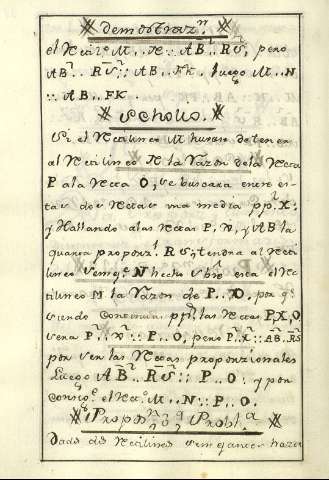 demostrazn
el Rectilo M .. N :: AB .. RS, pero
AB .. RS :: AB .. FK. luego M .. N
:: AB .. FK.
Scholio.
Si el Rectilineo M huviere de tener
al Rectilineo N la Razon de la Recta
P a la Recta O, se buscara entre es-
tas dos Rectas una media ppl X.
y Hallando alas Rectas P, X, y AB la
quarta proporzl RS, tendra al Recti
lineo N hecho sbre esta el Rec
tilineo M la Razon de P .. O. por q
siendo Continuas ppls las Rectas P, X, O,
sera P .. X :: P .. O, pero P .. X :: AB .. RS
por ser las Rectas proporzionales
Luego AB .. RS :: P .. O. y por
el Recto M .. N :: P .. O.
Propon 9 Probla
Dados dos Rectilineos Semejantes hazer